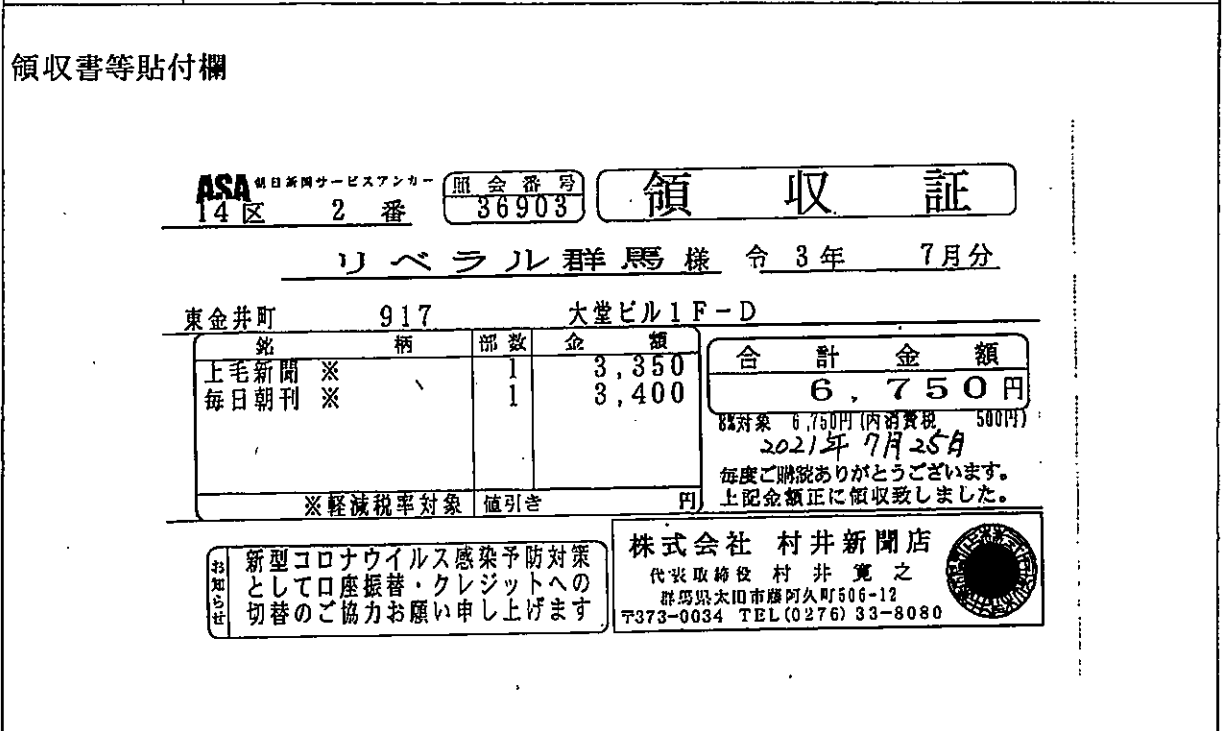 領収書等貼付欄
ASA 朝日新聞サービスアンカー 照会番号 領収証
14区 2番 36903
リベラル群馬様 令3年 7月分
東金井町 917 大堂ビル1F-D
銘柄 部数 金額 合計金額
上毛新聞 ※ 1 3,350
毎日朝刊 ※ 1 3,400
6,750円
8%対象 6,750円(内消費税 500円)
2021年7月25日
毎度ご購読ありがとうございます。
上記金額正に領収致しました。
※軽減税率対象 値引き 円
お知らせ
新型コロナウイルス感染予防対策
として口座振替・クレジットへの
切替のご協力お願い申し上げます
株式会社 村井新聞店
代表取締役 村井寛之
群馬県太田市藤阿久町506-12
〒373-0034 TEL(0276)33-8080